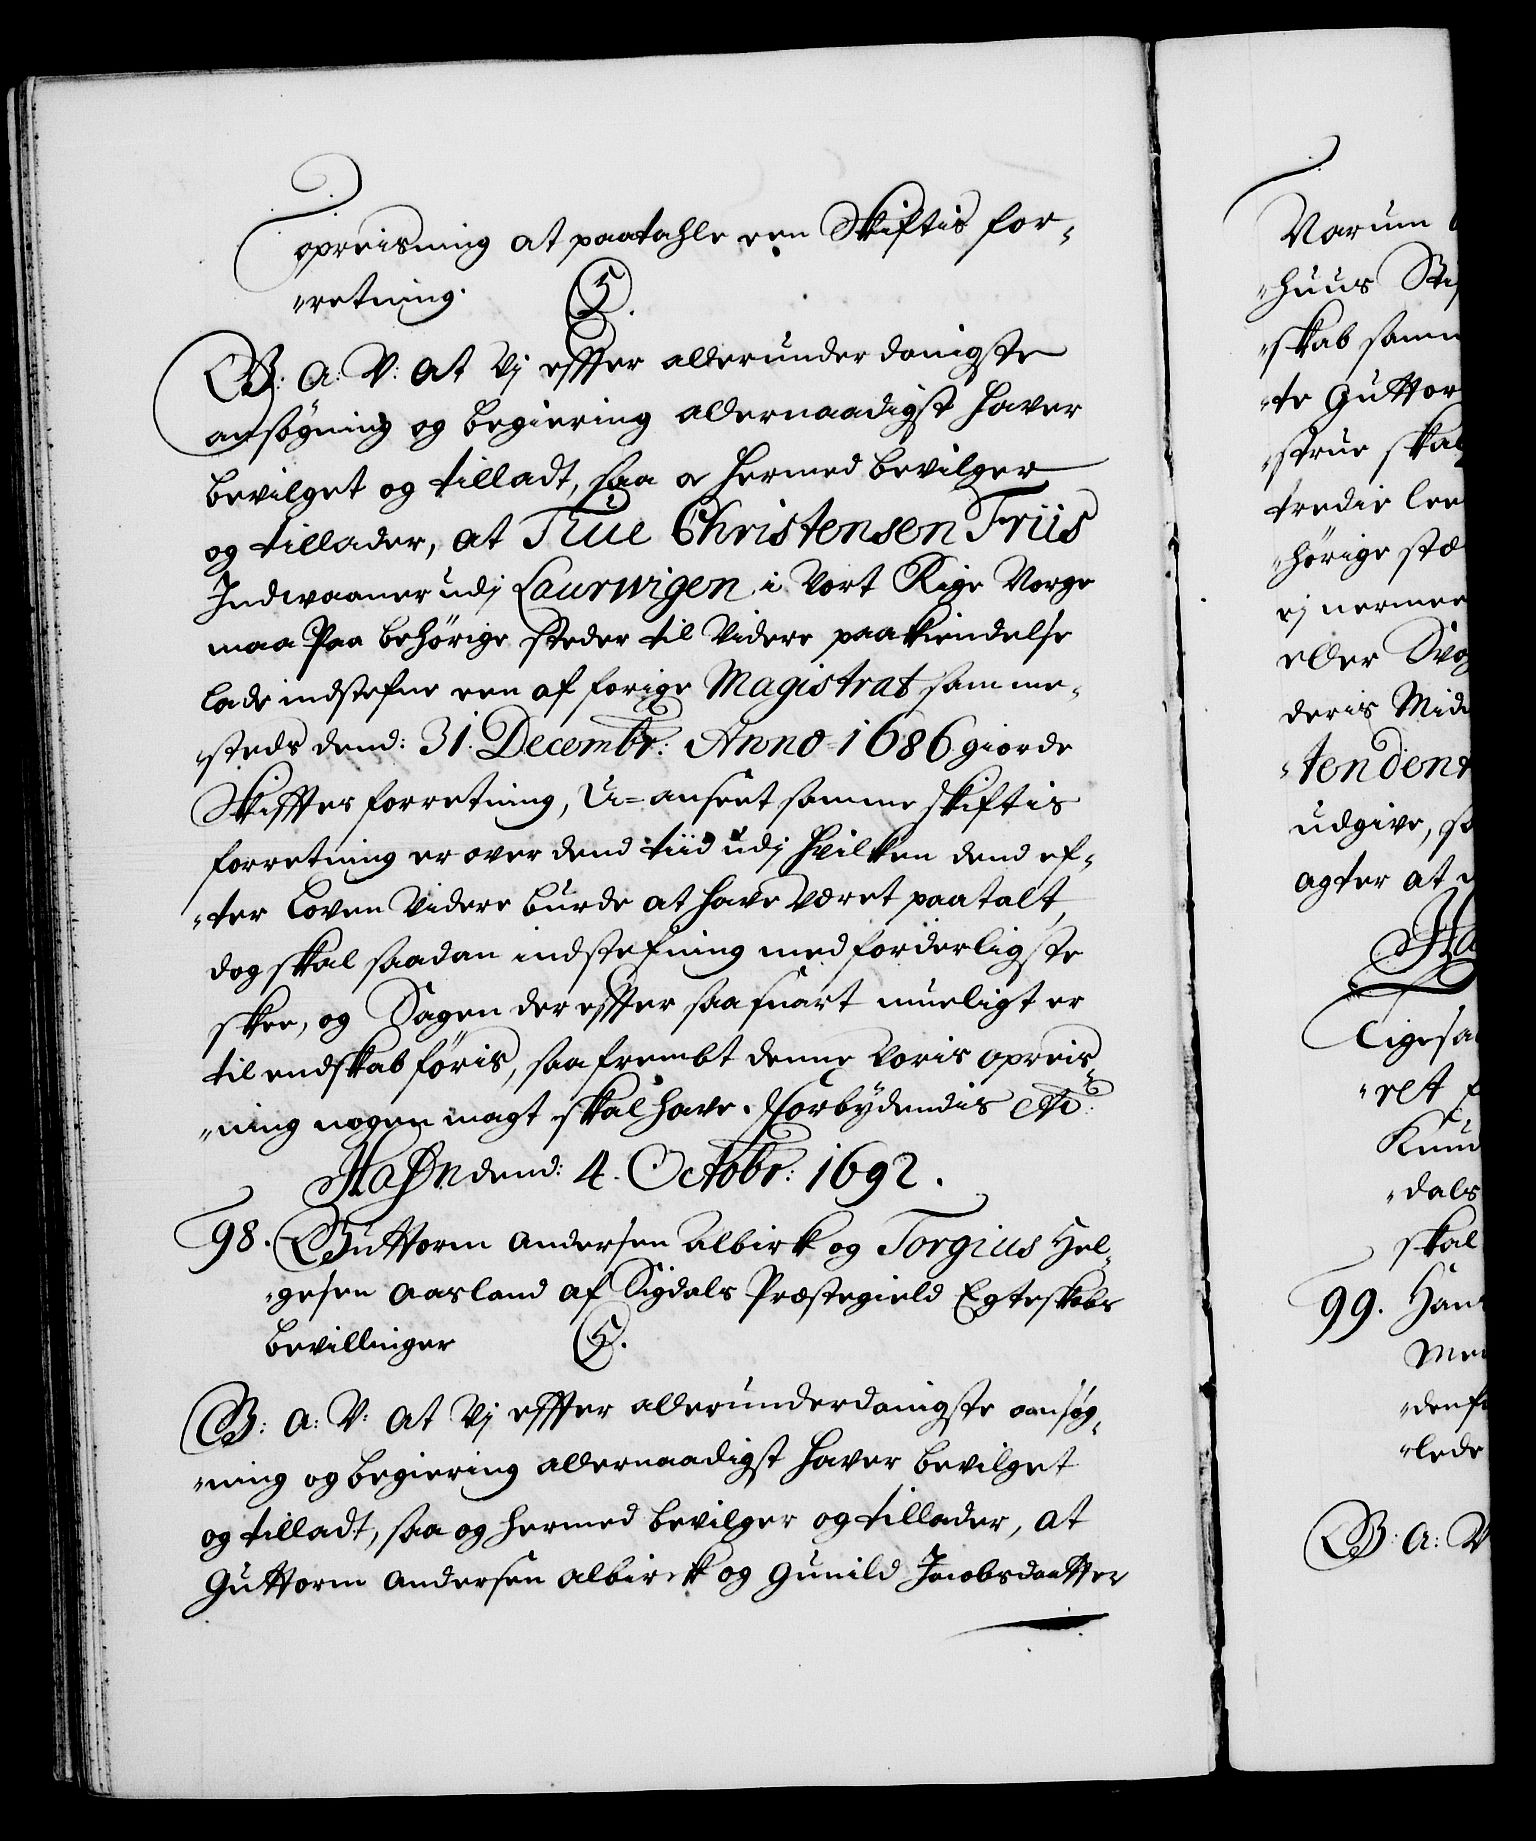 opreisning at paatahle een Skiftis for-
-retning.
5.
G: A: V: at Vj effter allerunderdanigste
ansögning og begiering allernaadigst hafver
bevilget og tilladt, saa o hermed bevilger
og tillader, at True Christensen Friis
Indwaaner udj Laurwigen i Vort Rige Norge
maa Paa behörige steder til Videre paakiendelse
lade indstefne een af forige Magistrat samme-
-steds dend: 31. Decembr: Anno 1686 giorde
Skiffter forretning, U=anseet samme skiftis
forretning er over dend tiid udj hvilken dend ef-
-ter Loven Videre burde at have været paatalt,
dog skal saadan indstefning med forderligste
skee, og Sagen der effter saa snart mueligt er
til endskab föris, saafrembt denne Voris opreis-
-ning nogen magt skal have. Forbydendis etc:
Hafn dend: 4. Octobr: 1692.
98. Guttorm Andersen Albirk og Torgius Hel-
-gesen Aasland af Sigdals Præstegield Egteskabs
bevillinger
5.
G: A: V: at Vj effter allerunderdanigste ansög-
-ning og begiering allernaadigst hafver bevilget
og tilladt, saa og hermed bevilger og tillader, at
Guttorm Andersen Albirk og Gunild Jacobsdaatter
Varum
-huus
-skab
-te Guttor
-strue skal
tredie lee
-hörige stæ
ej nermer
eller Svog
deris Mid
-tendent
udgive, s
agter at
Ha
Ligesa
-ret
Knud
-dals
skal
99. Hans
-lede
G: A: V